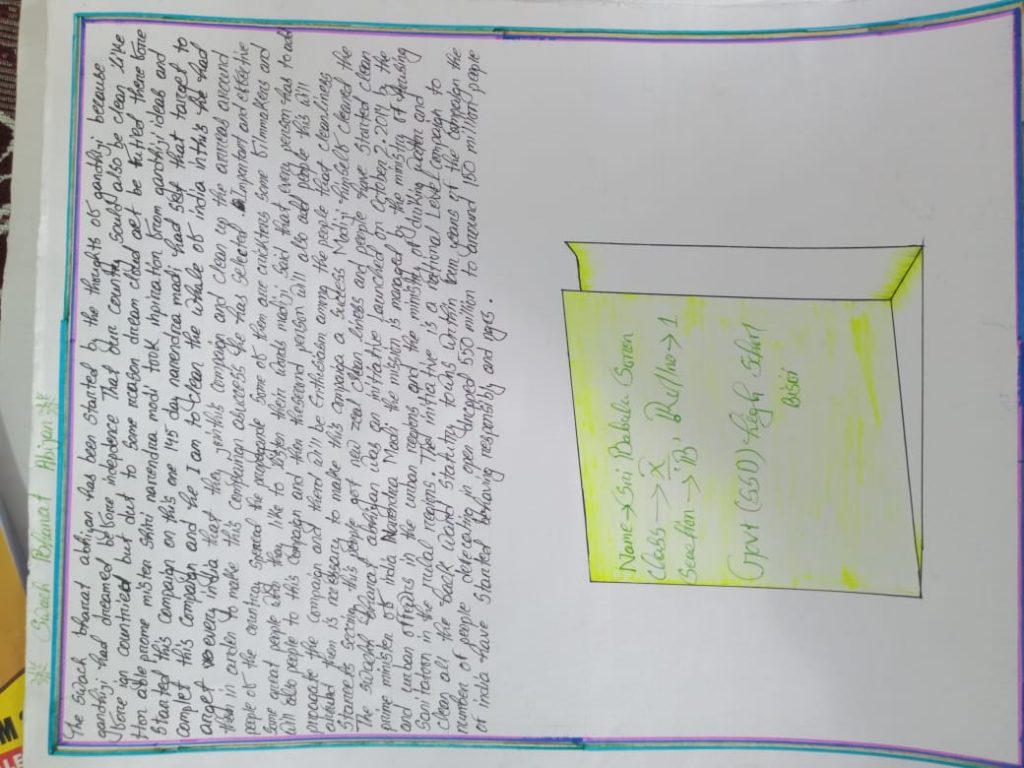 Swach Bharat Abiyan
The swach bharat abhiyan has been started by the thaughts of gandhiji because
gandhiji had dreamed before inependence That our country sould also be clean like
foreign countried but due to some reason dream cloud not be fulfied there fore
able prieme mister Shri narendra modi took inpiration from gandhiji ideas and
started this campaign on this one 145 day narendra modi had set that target to
complet this campaign and the I am to clean the whole of india in this the had
every india that they jointhis campaign and clean up the around
them in orden to make this campaingn success the has selected Important and effective
people of the country spread the propagande some of them are crickters some filmmakers and
some great people who they like to listen their words modiji said that every person has to add
will add people to this campaign and then people this will
propagate the campaign and there will be Enthusiasm among the people that cleanlines
around them is necessary to make this a Success Modiji himself cleaned the
Stareets seeing this people got new zeal clean lines and people have started clean
The swachh bharat abhiyan was an initiative launched on October 2, 2019 by the
prime minister of india Narendra Modi the mission is managed by the ministry of housing
and urban affairs in the urban regions and the ministry of Drinking water and
Sanitation in the rulal The initiative is a national Level campaign to
Clean all the back ward statuory towns within term years of the campaign the
number of people defecating in open dropped 550 million to around 150 million people
of india have started behaving responsibly and ages.
Name → Sri Babula Soren
Class → X
Seaction → 'B', Rollno → 1
Govt (SSD) high
Bisoi